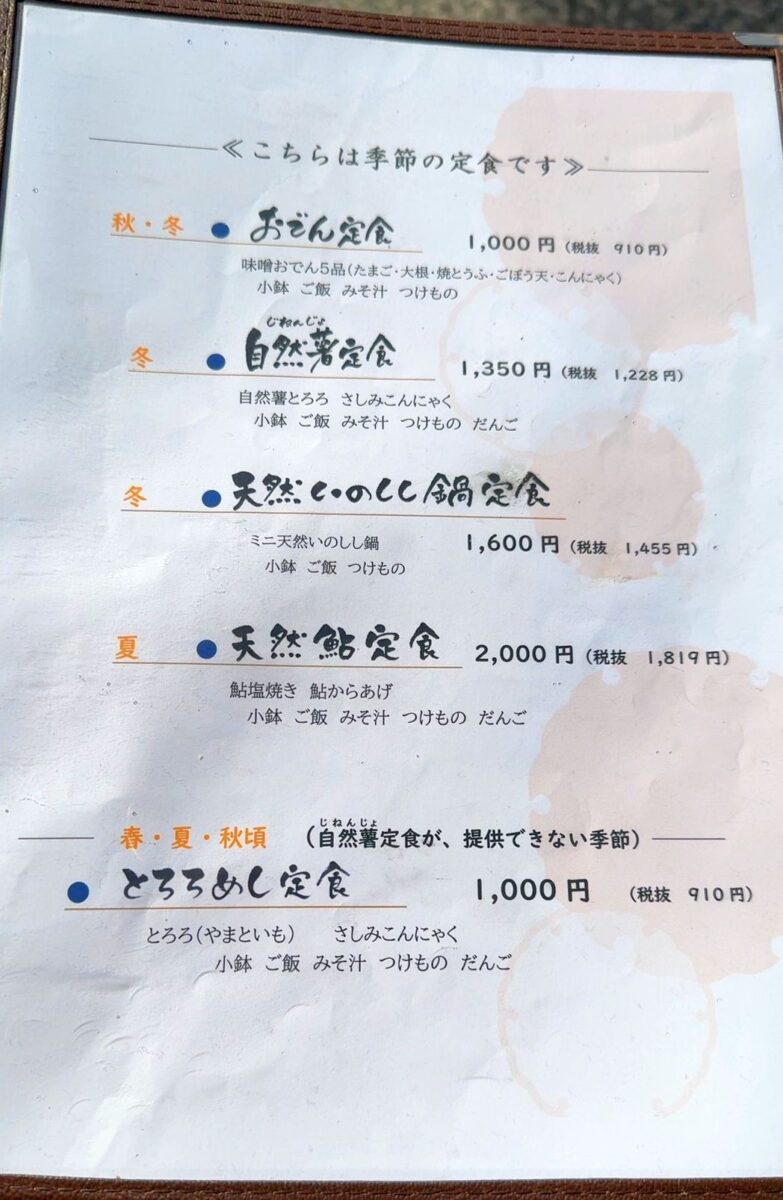 ≪こちらは季節の定食です≫
秋・冬 ● おでん定食 1,000円（税抜 910円）
味噌おでん5品（たまご・大根・焼とうふ・ごぼう天・こんにゃく）
小鉢 ご飯 みそ汁 つけもの
じねんじょ
冬 ● 自然薯定食 1,350円（税抜 1,228円）
自然薯とろろ さしみこんにゃく
小鉢 ご飯 みそ汁 つけもの だんご
冬 ● 天然いのしし鍋定食
ミニ天然いのしし鍋 1,600円（税抜 1,455円）
小鉢 ご飯 つけもの
夏 ● 天然鮎定食 2,000円（税抜 1,819円）
鮎塩焼き 鮎からあげ
小鉢 ご飯 みそ汁 つけもの だんご
じねんじょ
春・夏・秋頃 （自然薯定食が、提供できない季節）
● とろろめし定食 1,000円 （税抜 910円）
とろろ（やまといも） さしみこんにゃく
小鉢 ご飯 みそ汁 つけもの だんご